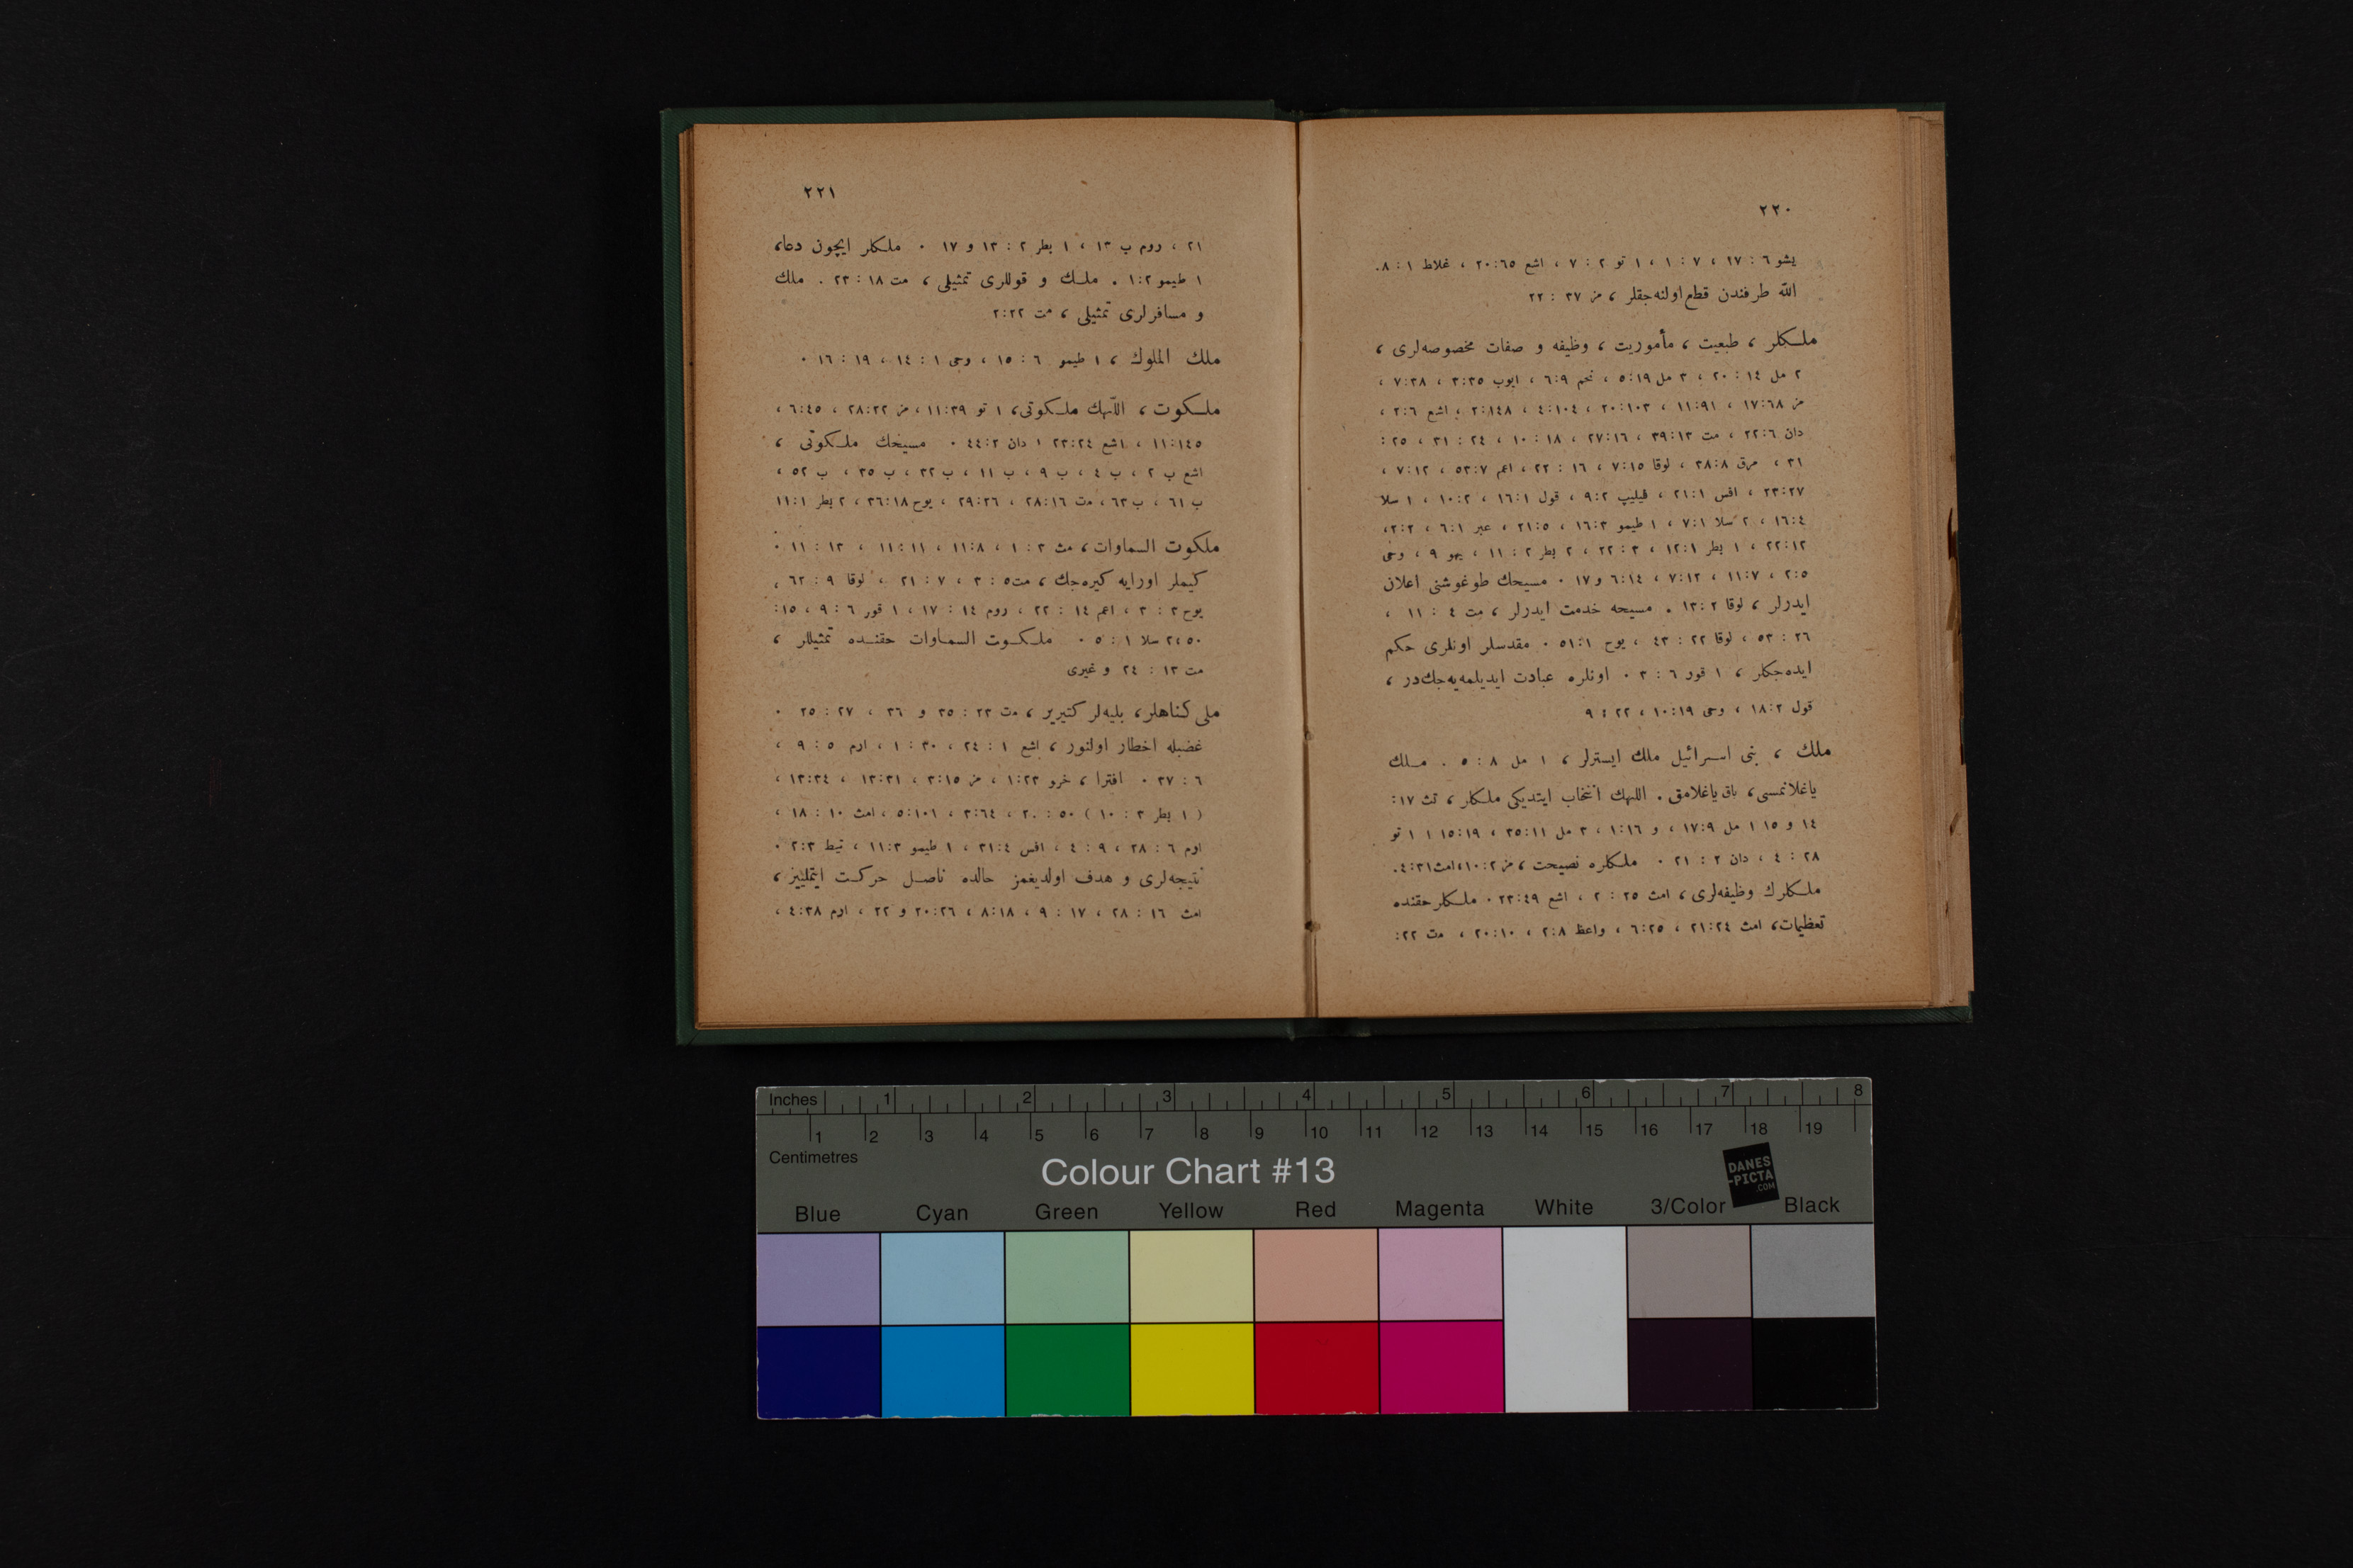 ٢٢٠
يشو ٦ : ١٧ ، ٧ : ١ ، ١ تو ٢ : ٧ ، اشع ٦٥:٢٠ ، غلاط ١ : ٨.
الله طرفندن قطع اولنه‌جقلر ، مز ٣٧ : ٢٢
ملكلر ، طبعيت ، مأموريت ، وظيفه و صفات مخصوصه‌لرى ،
٢ مل ١٤ : ٢٠ ، ٣ مل ١٩:٥ ، نحم ٩:٦ ، ايوب ٣:٢٥ ، ٧:٣٨ ،
مز ٦٨:١٧ ، ٩١:١١ ، ١٠٣:٢٠ ، ١٠٤:٤ ، ١٤٨:٢ ، اشع ٦:٢ ،
دان ٦:٢٢ ، مت ١٣:٣٩ ، ١٦:٢٧ ، ١٨ : ١٠ ، ٢٤ : ٣١ ، ٢٥ :
٣١ ، مرق ٨:٣٨ ، لوقا ١٥:٧ ، ١٦ : ٢٢ ، اعم ٧:٥٣ ، ١٢:٧ ،
٢٧:٢٣ ، افس ١:٢١ ، فيليپ ٢:٩ ، قول ١:١٦ ، ٢:١٠ ، ١ سلا
٤:١٦ ، ٢ سلا ١:٧ ، ١ طيمو ٣:١٦ ، ٥:٢١ ، عبر ١:٦ ، ٢:٢،
١٢:٢٢ ، ١ بطر ١:١٢ ، ٣ : ٢٢ ، ٢ بطر ٢ : ١١ ، يهو ٩ ، وحى
٥:٢ ، ٧:١١ ، ١٢:٧ ، ١٤:٦ و ١٧ ٠ مسيحك طوغوشنى اعلان
ايدرلر ، لوقا ٢:١٣ . مسيحه خدمت ايدرلر ، مت ٤ : ١١ ،
٢٦ : ٥٣ ، لوقا ٢٢ : ٤٣ ، يوح ١:٥١ ٠ مقدسلر اونلرى حكم
ايده‌جكلر ، ١ قور ٦ : ٣ ٠ اونلره عبادت ايديلمه‌يه‌جك‌در ،
قول ٢:١٨ ، وحى ١٩:١٠ ، ٢٢ : ٩
ملك ، بنى اسرائيل ملك ايسترلر ، ١ مل ٨ : ٥ . ملك
ياغلانمسى ، باق ياغلامق . اللهك انتخاب ايتديكى ملكلر ، تث ١٧:
١٤ و ١٥ ١ مل ٩:١٧ ، و ١٦:١ ، ٣ مل ١١:٣٥ ، ١٩:١٥ ١ ١ تو
٢٨ : ٤ ، دان ٢ : ٢١ ٠ ملكلره نصيحت ، مز ٢:١٠،امث٣١:٤.
ملكلرك وظيفه‌لرى ، امث ٢٥ : ٢ ، اشع ٤٩:٢٣ ٠ ملكلر حقنده
تعظيمات ، امث ٢٤:٢١ ، ٢٥:٦ ، واعظ ٨:٢ ، ١٠:٢٠ ، مت ٢٢:
٢٢١
٢١ ، روم ب ١٣ ، ١ بطر ٢ : ١٣ و ١٧ ٠ ملكلر ايچون دعا،
١ طيمو ٢:١ ٠ ملك و قوللرى تمثيلى ، مت ١٨ : ٢٣ . ملك
و مسافرلرى تمثيلى ، مت ٢٢:٢
ملك الملوك ، ١ طيمو ٦ : ١٥ ، وحى ١ : ١٤ ، ١٩ : ١٦ ٠
ملكوت ، اللهك ملكوتى، ١ تو ٢٩:١١، مز ٢٢:٢٨ ، ٤٥:٦ ،
١٤٥:١١ ، اشع ٢٤:٢٣ ١ دان ٢:٤٤ ٠ مسيحك ملكوتى ،
اشع ب ٢ ، ب ٤ ، ب ٩ ، ب ١١ ، ب ٣٢ ، ب ٣٥ ، ب ٥٢ ،
ب ٦١ ، ب ٦٣ ، مت ١٦:٢٨ ، ٢٦:٢٩ ، يوح ١٨:٣٦ ، ٢ بطر ١:١١
ملكوت السماوات ، مث ٣ : ١ ، ٨:١١ ، ١١:١١ ، ١٣ : ١١ ٠
كيملر اورايه كيره‌جك ، مت٥ : ٣ ، ٧ : ٢١ ، لوقا ٩ : ٦٢ ،
يوح ٣ : ٣ ، اعم ١٤ : ٢٢ ، روم ١٤ : ١٧ ، ١ قور ٦ : ٩ ، ١٥:
٥٠ ،٢ سلا ١ : ٥ ٠ ملكوت السماوات حقنده تمثيللر ،
مت ١٣ : ٢٤ و غيرى
ملى كناهلر، بليه‌لر كتيرير ، مت ٢٣ : ٣٥ و ٣٦ ، ٢٧ : ٢٥ ٠
غضبله اخطار اولنور ، اشع ١ : ٢٤ ، ٣٠ : ١ ، ارم ٥ : ٩ ،
٦ : ٢٧ ٠ افترا ، خرو ٢٣:١ ، مز ١٥:٣ ، ٣١:١٣ ، ٣٤:١٣ ،
( ١ بطر ٣ : ١٠ ) ٥٠ : ٢٠ ، ٦٤:٣ ، ١٠١:٥ ، امث ١٠ : ١٨ ،
ارم ٦ : ٢٨ ، ٩ : ٤ ، افس ٤:٣١ ، ١ طيمو ٣:١١ ، تيط ٣:٢ ٠
نتيجه‌لرى و هدف اولديغمز حالده ناصل حركت ايتمليز ،
امث ١٦ : ٢٨ ، ١٧ : ٩ ، ١٨:٨ ، ٢٦:٢٠ و ٢٢ ، ارم ٣٨:٤ ،
Inches 1 2 3 4 5 6 7 8
1 2 3 4 5 6 7 8 9 10 11 12 13 14 15 16 17 18 19
Centimetres
Colour Chart #13
DANES
-PICTA
.COM
Blue Cyan Green Yellow Red Magenta White 3/Color Black